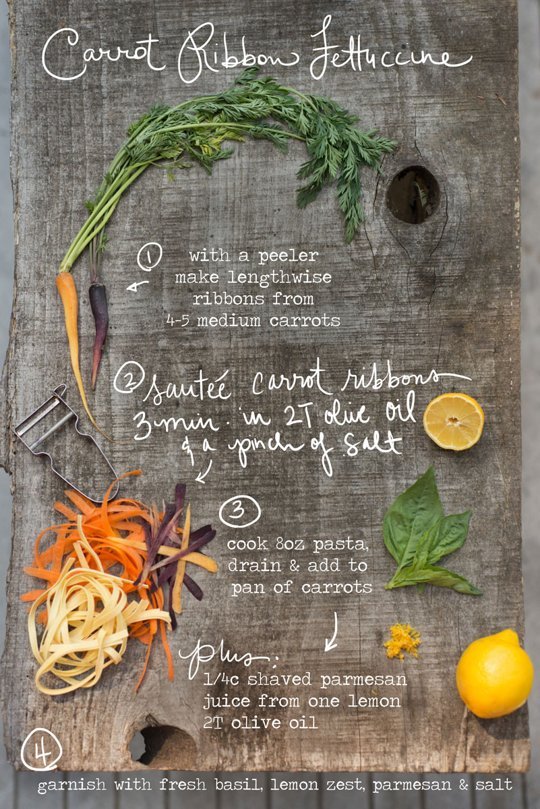 Carrot Ribbon Fettuccine
1 with a peeler
make lengthwise
ribbons from
4-5 medium carrots
2 sauteé carrot ribbons
3 min. in 2T olive oil
& a pinch of salt
3
cook 8oz pasta,
drain & add to
pan of carrots
plus:
1/4c shaved parmesan
juice from one lemon
2T olive oil
4
garnish with fresh basil, lemon zest, parmesan & salt